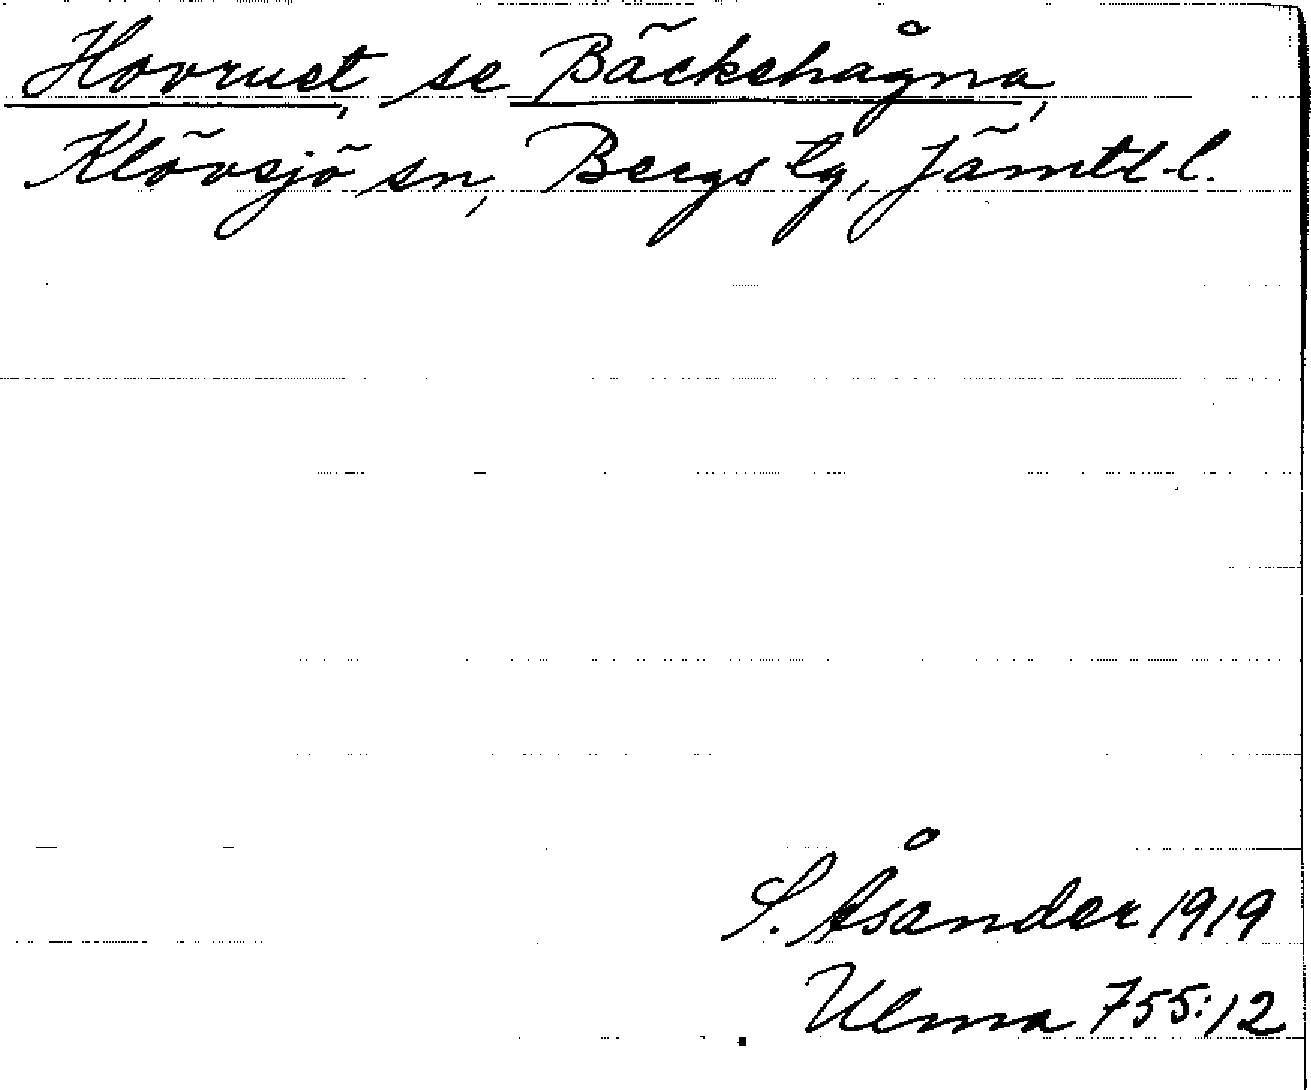 Hovrust, se Bäckehågna,
Klövsjö sn, Bergs tg, Jämtl. l.
S. Åsander 1919
Ulma 755:12